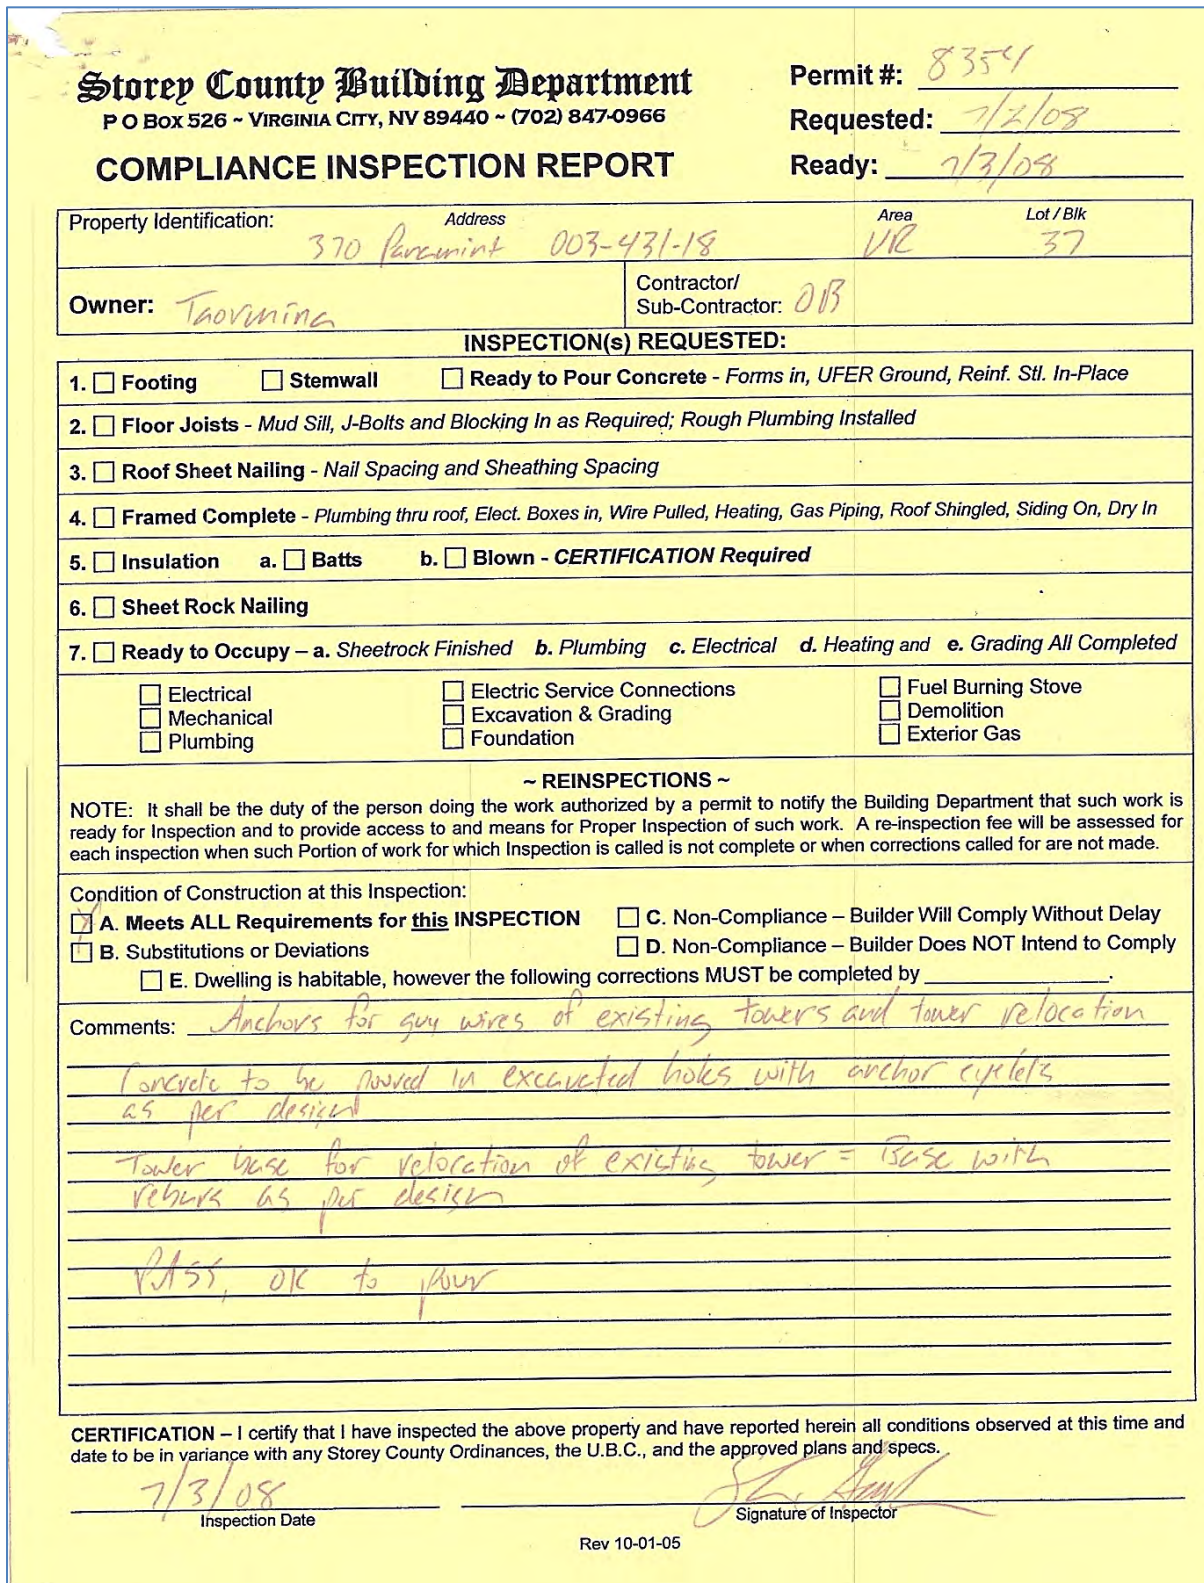 Storey County Building Department
P O BOX 526 ~ VIRGINIA CITY, NV 89440 ~ (702) 847-0966
COMPLIANCE INSPECTION REPORT
Permit #: 8354
Requested: 7/2/08
Ready: 7/3/08
Property Identification: Address Area Lot / Blk
370 Paramint 003-431-18 VR 37
Owner: Taormina Contractor/
Sub-Contractor: OB
INSPECTION(s) REQUESTED:
1. Footing Stemwall Ready to Pour Concrete - Forms in, UFER Ground, Reinf. Stl. In-Place
2. Floor Joists - Mud Sill, J-Bolts and Blocking In as Required; Rough Plumbing Installed
3. Roof Sheet Nailing - Nail Spacing and Sheathing Spacing
4. Framed Complete - Plumbing thru roof, Elect. Boxes in, Wire Pulled, Heating, Gas Piping, Roof Shingled, Siding On, Dry In
5. Insulation a. Batts b. Blown - CERTIFICATION Required
6. Sheet Rock Nailing
7. Ready to Occupy – a. Sheetrock Finished b. Plumbing c. Electrical d. Heating and e. Grading All Completed
Electrical Electric Service Connections Fuel Burning Stove
Mechanical Excavation & Grading Demolition
Plumbing Foundation Exterior Gas
~ REINSPECTIONS ~
NOTE: It shall be the duty of the person doing the work authorized by a permit to notify the Building Department that such work is
ready for Inspection and to provide access to and means for Proper Inspection of such work. A re-inspection fee will be assessed for
each inspection when such Portion of work for which Inspection is called is not complete or when corrections called for are not made.
Condition of Construction at this Inspection:
X A. Meets ALL Requirements for this INSPECTION C. Non-Compliance – Builder Will Comply Without Delay
B. Substitutions or Deviations D. Non-Compliance – Builder Does NOT Intend to Comply
E. Dwelling is habitable, however the following corrections MUST be completed by ____________.
Comments: Anchors for guy wires of existing towers and tower relocation
Concrete to be poured in excavated holes with anchor eyelets
as per design
Tower base for relocation of existing tower = Base with
rebars as per design
PASS, OK to pour
CERTIFICATION – I certify that I have inspected the above property and have reported herein all conditions observed at this time and
date to be in variance with any Storey County Ordinances, the U.B.C., and the approved plans and specs.
7/3/08
Inspection Date Signature of Inspector
Rev 10-01-05